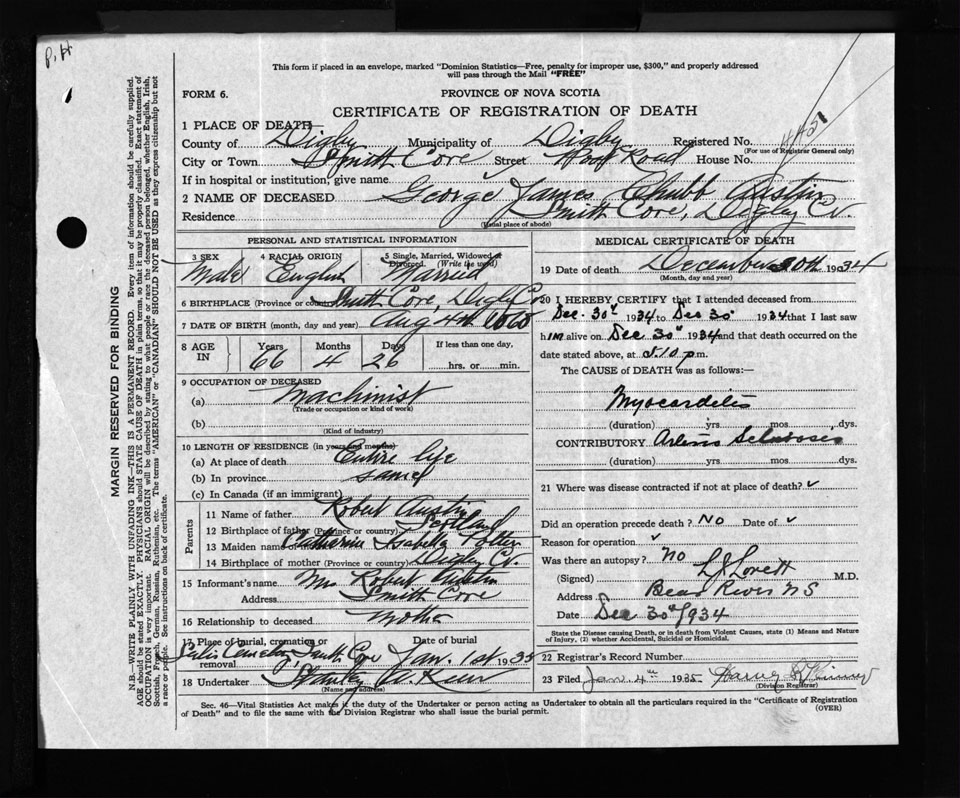 P.H
This form if placed in an envelope, marked "Dominion Statistics—Free, penalty for improper use, $300," and properly addressed
will pass through the Mail "FREE"
FORM 6.
PROVINCE OF NOVA SCOTIA
CERTIFICATE OF REGISTRATION OF DEATH
1 PLACE OF DEATH—
County of Digby Municipality of Digby Registered No. 4451
(For use of Registrar General only)
City or Town Smith Cove Street Road House No.
If in hospital or institution, give name
2 NAME OF DECEASED George James Chubb Austin
Residence Smith Cove, Digby Co.
(Usual place of abode)
PERSONAL AND STATISTICAL INFORMATION
3 SEX Male
4 RACIAL ORIGIN English
5 Single, Married, Widowed or Divorced. (Write the word) Married
6 BIRTHPLACE (Province or country) Smith Cove, Digby Co
7 DATE OF BIRTH (month, day and year) Aug 4th
8 AGE IN
Years Months Days
66 4 26
If less than one day,
hrs. or min.
9 OCCUPATION OF DECEASED
(a) Machinist
(Trade or occupation or kind of work)
(b)
(Kind of industry)
10 LENGTH OF RESIDENCE (in years and months)
(a) At place of death Entire life
(b) In province same
(c) In Canada (if an immigrant)
Parents
11 Name of father Robert Austin
12 Birthplace of father (Province or country) Scotland
13 Maiden name of mother Catherine Isabella Potter
14 Birthplace of mother (Province or country) Digby Co.
15 Informant's name Mrs Robert Austin
Address Smith Cove
16 Relationship to deceased Mother
17 Place of burial, cremation or removal Cemetery Smith Cove
Date of burial Jan. 1st 1935
18 Undertaker Stanley
(Name and address)
MEDICAL CERTIFICATE OF DEATH
19 Date of death December 30th 1934
(Month, day and year)
20 I HEREBY CERTIFY that I attended deceased from
Dec. 30th 1934 to Dec 30 1934 that I last saw
him alive on Dec 30th 1934 and that death occurred on the
date stated above, at 5.10 p m.
The CAUSE of DEATH was as follows:—
Myocarditis
(duration) yrs. mos. dys.
CONTRIBUTORY Arterio Sclerosis
(duration) yrs. mos. dys.
21 Where was disease contracted if not at place of death?
Did an operation precede death? No Date of
Reason for operation
Was there an autopsy? no
(Signed) L J Lovett M.D.
Address Bear River N S
Date Dec 30th 1934
State the Disease causing Death, or in death from Violent Causes, state (1) Means and Nature
of Injury, (2) whether Accidental, Suicidal or Homicidal.
22 Registrar's Record Number
23 Filed Jan 4th 1935 Harry
(Division Registrar)
Sec. 46—Vital Statistics Act makes it the duty of the Undertaker or person acting as Undertaker to obtain all the particulars required in the "Certificate of Registration
of Death" and to file the same with the Division Registrar who shall issue the burial permit.
(OVER)
MARGIN RESERVED FOR BINDING
N.B.—WRITE PLAINLY WITH UNFADING INK—THIS IS A PERMANENT RECORD. Every item of information should be carefully supplied.
AGE should be stated EXACTLY. PHYSICIANS should STATE CAUSE OF DEATH in plain terms, so that it may be properly classified. Exact statement of
OCCUPATION is very important. RACIAL ORIGIN will be described by stating to what people or race the deceased person belonged, whether English, Irish,
Scottish, French, German, Russian, Ruthenian, etc. The terms "AMERICAN" or "CANADIAN" SHOULD NOT BE USED as they express citizenship but not
a race or people. See instructions on back of certificate.